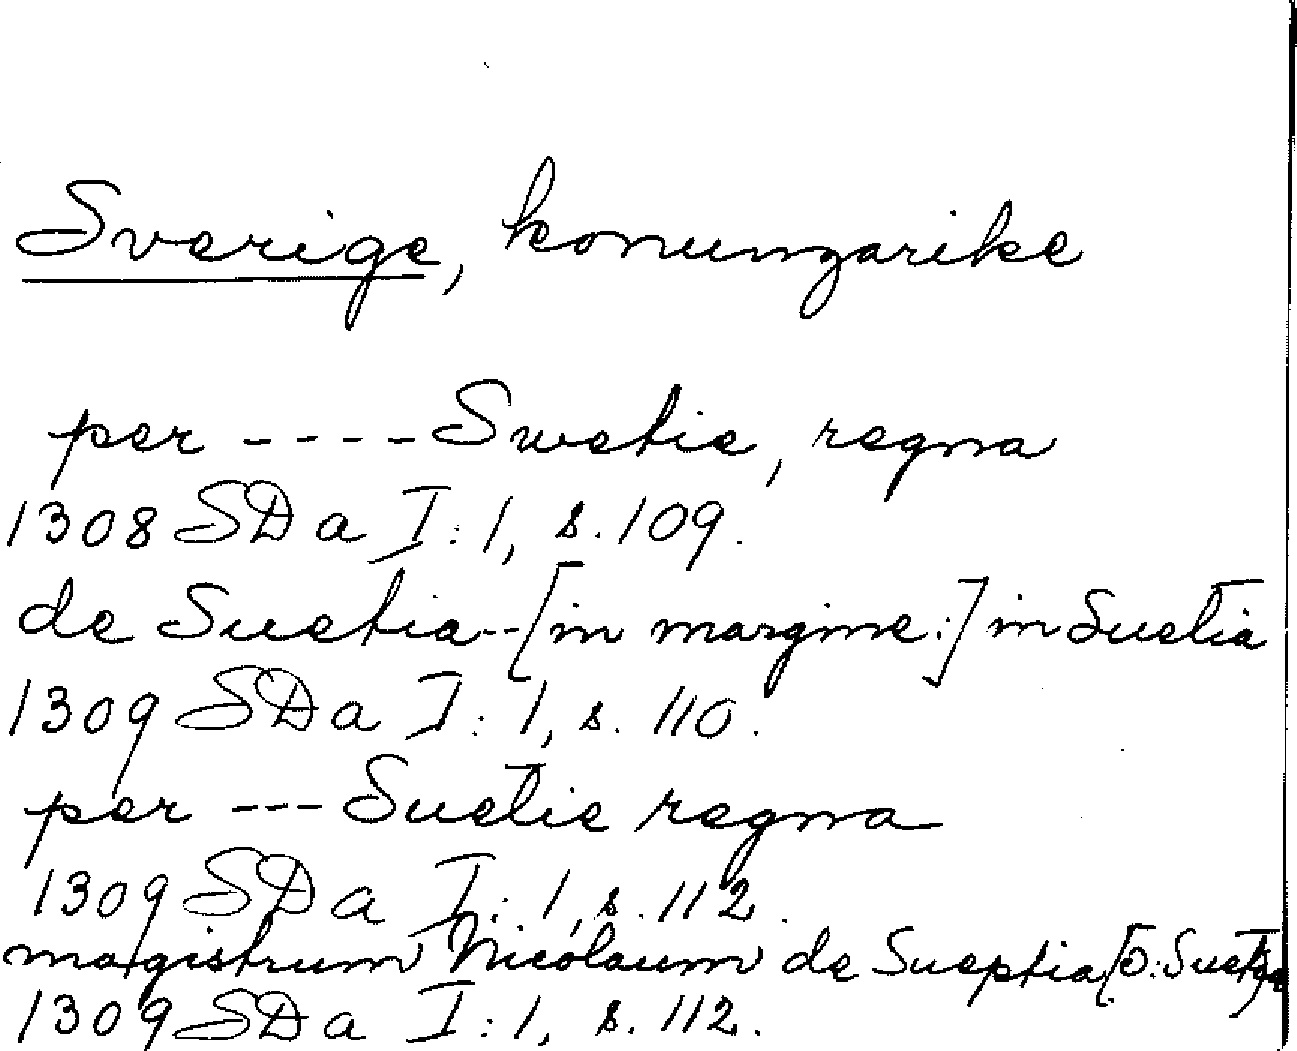 Sverige, konungarike
per ---- Swetie, regna
1308 SDa I:1, s. 109.
de Suetia -- [in margine:] in Suetia
1309 SDa I:1, s. 110.
per --- Suetie regna
1309 SDa I:1, s. 112.
magistrum Nicolaum de Sueptia [ɔ: Suetia]
1309 SDa I:1, s. 112.